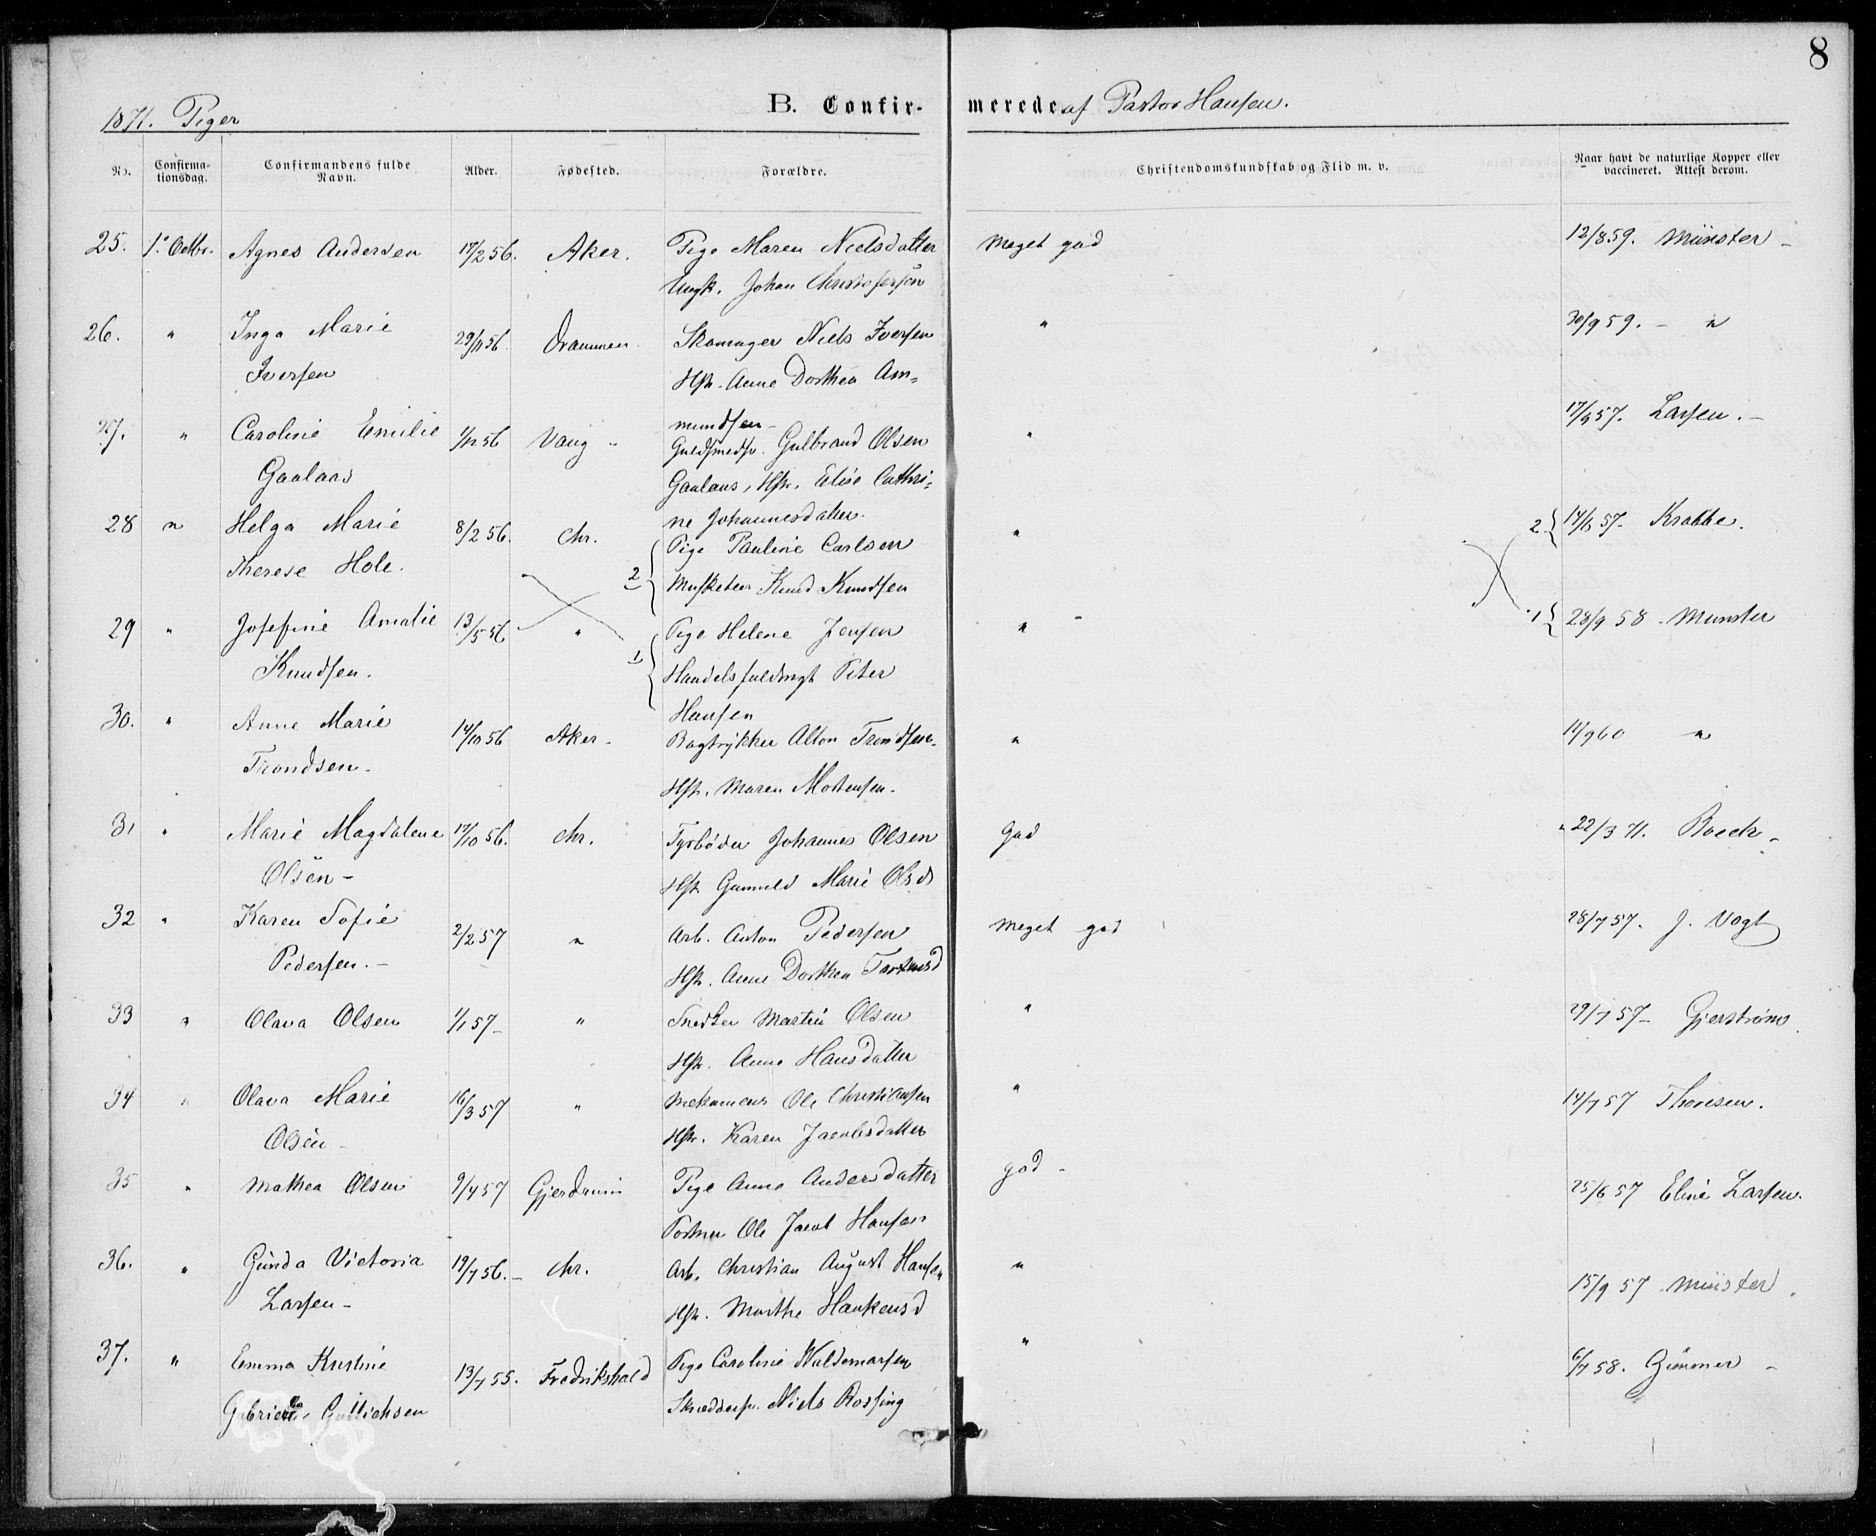 8
1871. Piger B. Confir- merede af Pastor Hansen.
No. Confirma-tionsdag. Confirmandens fulde Navn. Alder. Fødested. Forældre. Christendomskundskab og Flid m. v. Naar havt de naturlige Kopper eller vaccineret. Attest derom.
25. 1. Octbr. Agnes Andersen 17/2 56. Aker. Pige Maren Nielsdatter Meget god 12/8 59. Münster -
Ungk. Johan Christofersen
26. " Inga Marie 29/11 56. Drammen. Skomager Niels Iversen " 30/9 59. - "
Iversen Hstr. Anne Dorthea Am-
mundsen -
27. " Caroline Emilie 1/12 56 Vang - Guldsmedsv. Gulbrand Olsen " 17/9 57. Larsen. -
Gaalaas Gaalaas, Hstr. Elise Cathri-
ne Johannesdatter.
28 " Helga Marie 8/2 56. Chr. Pige Pauline Carlsen " 2 { 14/8 57 - Krabbe.
Therese Hole. 2 { Musketeer Knud Knudsen
29 " Josefine Amalie 13/5 56 " Pige Helene Jensen " 1 { 28/9 58 - Münster
Knudsen. 1 { Handelsfuldmgt Peter
Hansen
30. " Anne Marie 14/10 56 Aker. Bogtrykker Alton Trondsen. " 14/9 60 "
Trondsen - Hstr. Maren Mortensen.
31 " Marie Magdalene 17/10 56. Chr. Fyrbøder Johannes Olsen God 22/3 71. Boeck -
Olsen - Hstr. Gunnild Marie Olsd
32 " Karen Sofie 2/2 57 " Arb. Anton Pedersen Meget god 28/7 57. J. Vogt
Pedersen. - Hstr. Anne Dorthea
33 " Olava Olsen 1/1 57 - " Snedker Martin Olsen " 29/7 57 - Gjerstrøm
Hstr. Anne Hansdatter
34 " Olava Marie 16/3 57 " Mekanicus Ole Christiansen " 14/7 57 Thoresen.
Olsen - Hstr. Karen Jacobsdatter
35 " Mathea Olsen 9/4 57 Gjerdrum Pige Anne Andersdatter god - 25/6 57 Eline Larsen.
Ole Jacob Hansen
36. " Gunda Victoria 19/7 56. - Chr. Arb. Christian August Hansen " 15/9 57 Münster
Larsen - Hstr. Marthe Haakensd
37. " Emma Kristine 13/7 55. Fredrikshald Pige Caroline Waldemarsen " 6/7 58. Gümmer -
Skrædersv. Niels Rossing